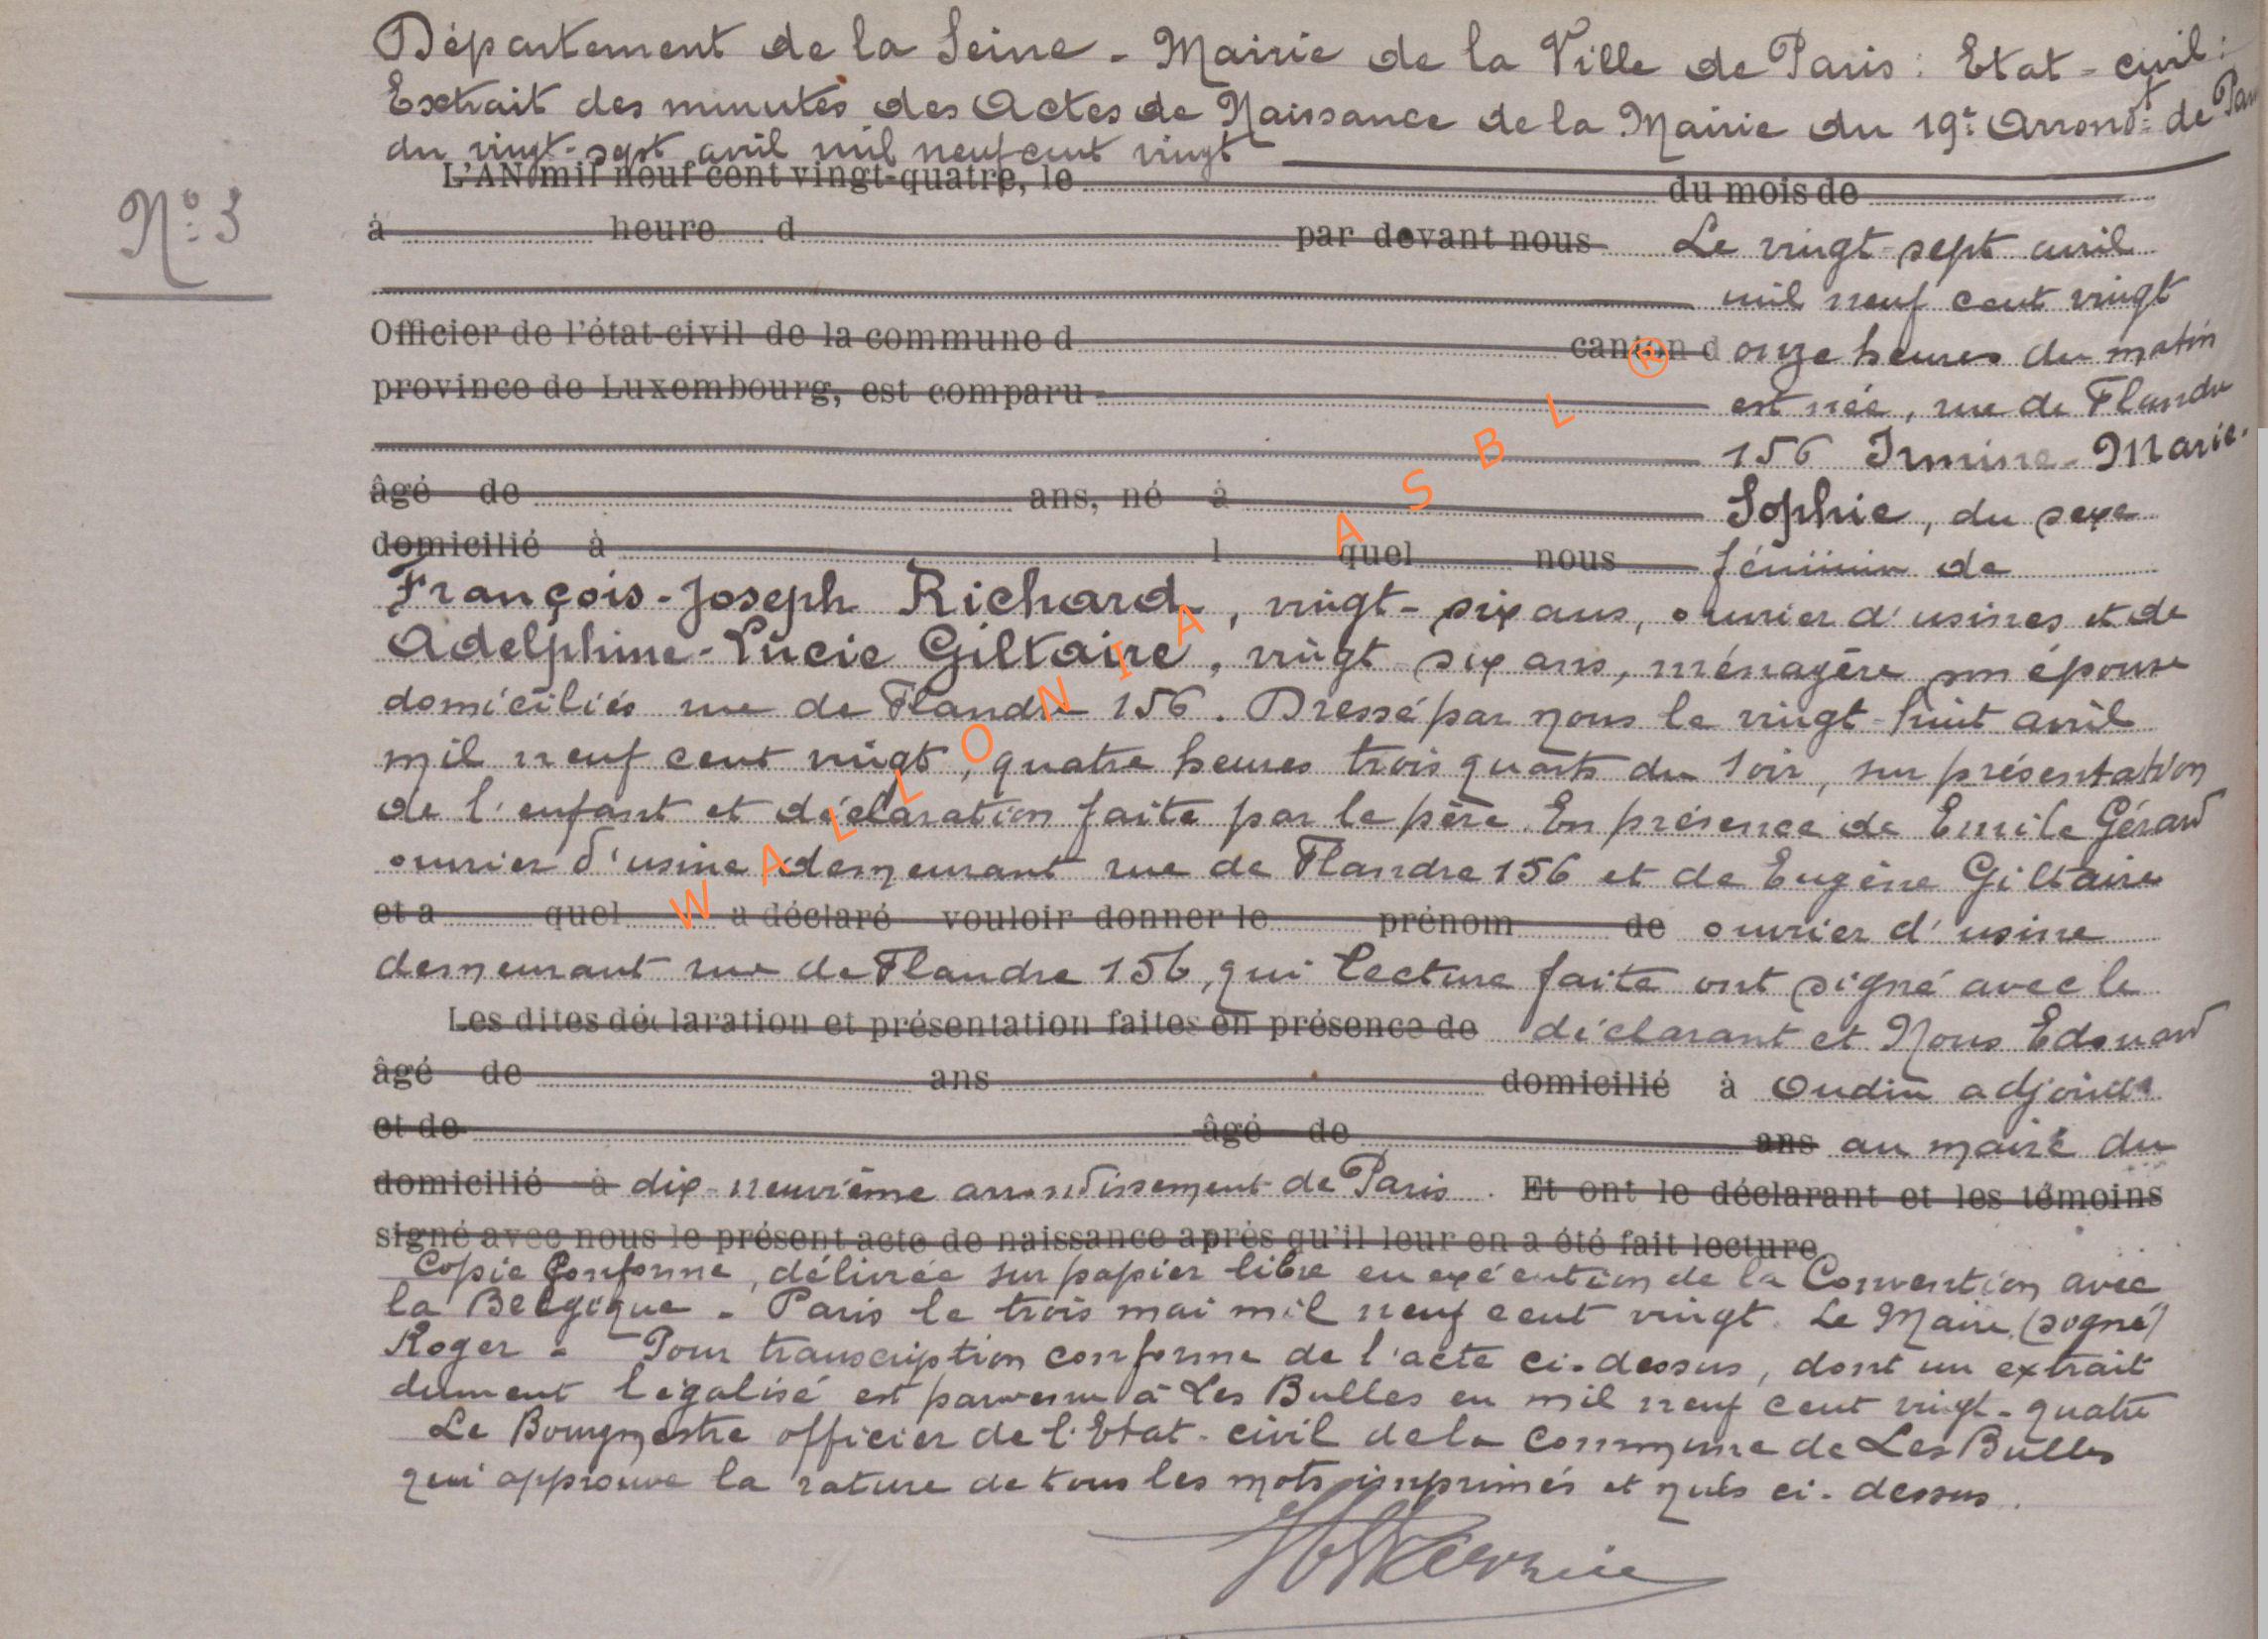 Département de la Seine - Mairie de la Ville de Paris : Etat - civil :
Extrait des minutes des Actes de Naissance de la Mairie du 19e Arrondt de Par
du vingt-sept avril mil neuf cent vingt
L'AN mil neuf cent vingt-quatre, le du mois de
N° 3
à heure d par devant nous Le vingt-sept avril
mil neuf cent vingt
Officier de l'état-civil de la commune d canton d onze heures du matin
province de Luxembourg, est comparu est née, rue de Flandre
156 Irmine-Marie-
âgé de ans, né à Sophie, du sexe
domicilié à l quel nous féminin de
François-Joseph Richard, vingt-six ans, ouvrier d'usines et de
Adelphine-Lucie Giltaire, vingt-six ans, ménagère son épouse
domiciliés rue de Flandre 156. Dressé par nous le vingt-huit avril
mil neuf cent vingt, quatre heures trois quarts du soir, sur présentation
de l'enfant et déclaration faite par le père. En présence de Emile Gérard
ouvrier d'usine demeurant rue de Flandre 156 et de Eugène Giltaire
et a quel a déclaré vouloir donner le prénom de ouvrier d'usine
demeurant rue de Flandre 156, qui lecture faite ont signé avec le
Les dites déclaration et présentation faites en présence de déclarant et Nous Edouard
âgé de ans domicilié à Oudin adjoint
et de âgé de ans au maire du
domicilié à dix-neuvième arrondissement de Paris. Et ont le déclarant et les témoins
signé avec nous le présent acte de naissance après qu'il leur en a été fait lecture
Copie Conforme, délivrée sur papier libre en exécution de la Convention avec
la Belgique - Paris le trois mai mil neuf cent vingt. Le Maire (signé)
Roger - Pour transcription conforme de l'acte ci-dessus, dont un extrait
dument légalisé est parvenu à Les Bulles en mil neuf cent vingt-quatre
Le Bourgmestre officier de l'Etat-civil de la Commune de Les Bulles
qui approuve la rature de tous les mots imprimés et nuls ci-dessus.
WALLONIA ASBL ®